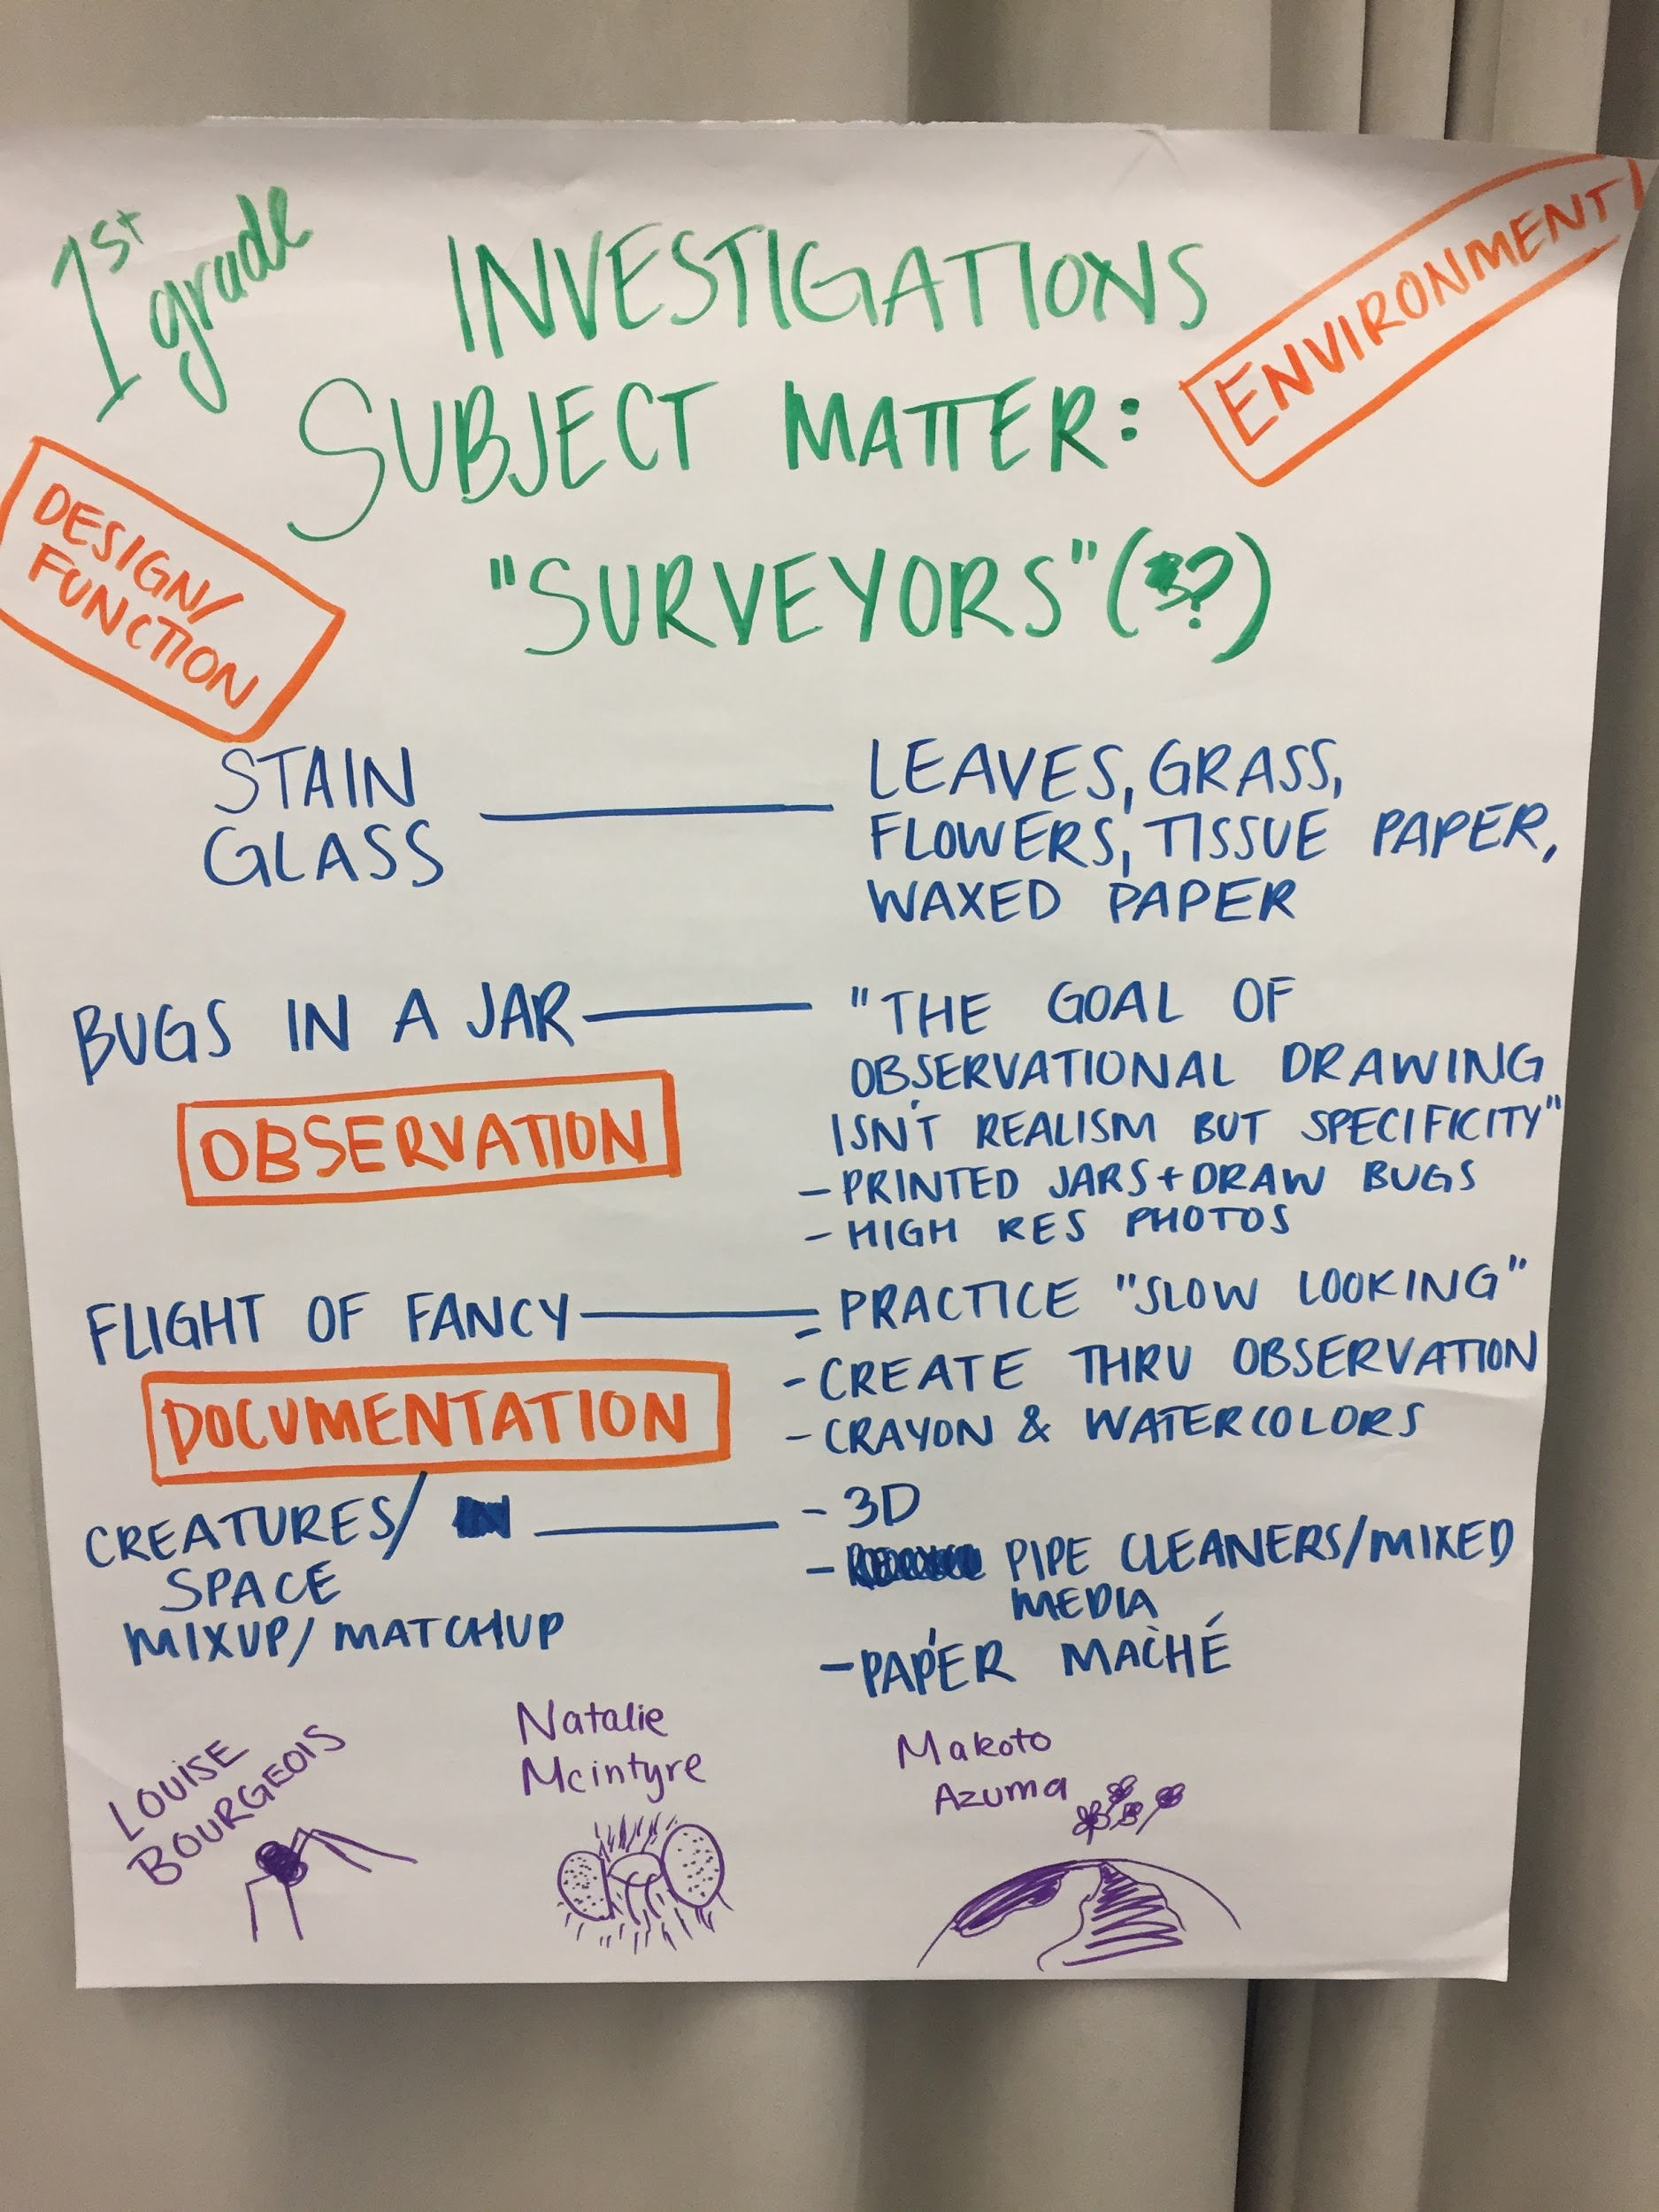 1st grade
INVESTIGATIONS
ENVIRONMENT
SUBJECT MATTER:
DESIGN/
FUNCTION
"SURVEYORS" (?)
STAIN
GLASS
LEAVES, GRASS,
FLOWERS, TISSUE PAPER,
WAXED PAPER
BUGS IN A JAR
"THE GOAL OF
OBSERVATIONAL DRAWING
ISN'T REALISM BUT SPECIFICITY"
- PRINTED JARS + DRAW BUGS
- HIGH RES PHOTOS
OBSERVATION
FLIGHT OF FANCY
- PRACTICE "SLOW LOOKING"
- CREATE THRU OBSERVATION
- CRAYON & WATERCOLORS
DOCUMENTATION
CREATURES/
SPACE
MIXUP/MATCHUP
- 3D
- PIPE CLEANERS/MIXED
MEDIA
- PAPER MACHÉ
LOUISE
BOURGEOIS
Natalie
Mcintyre
Makoto
Azuma